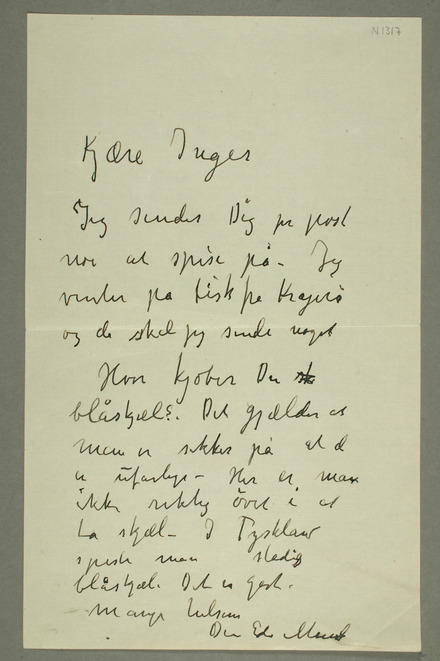 N1317
Kjære Inger
Jeg sender Dig pr post
noe at spise på – Jeg
venter på fisk fra Kragerø
og da skal jeg sende noget
Hvor kjøber Du
blåskjæl? Det gjælder at
man er sikker på at de
er ufarlige – Her er man
ikke riktig øvet i at
ta skjæl – I Tyskland
spiste man stadig
blåskjæl. Det er godt.
Mange hilsen
Din Edv Munch